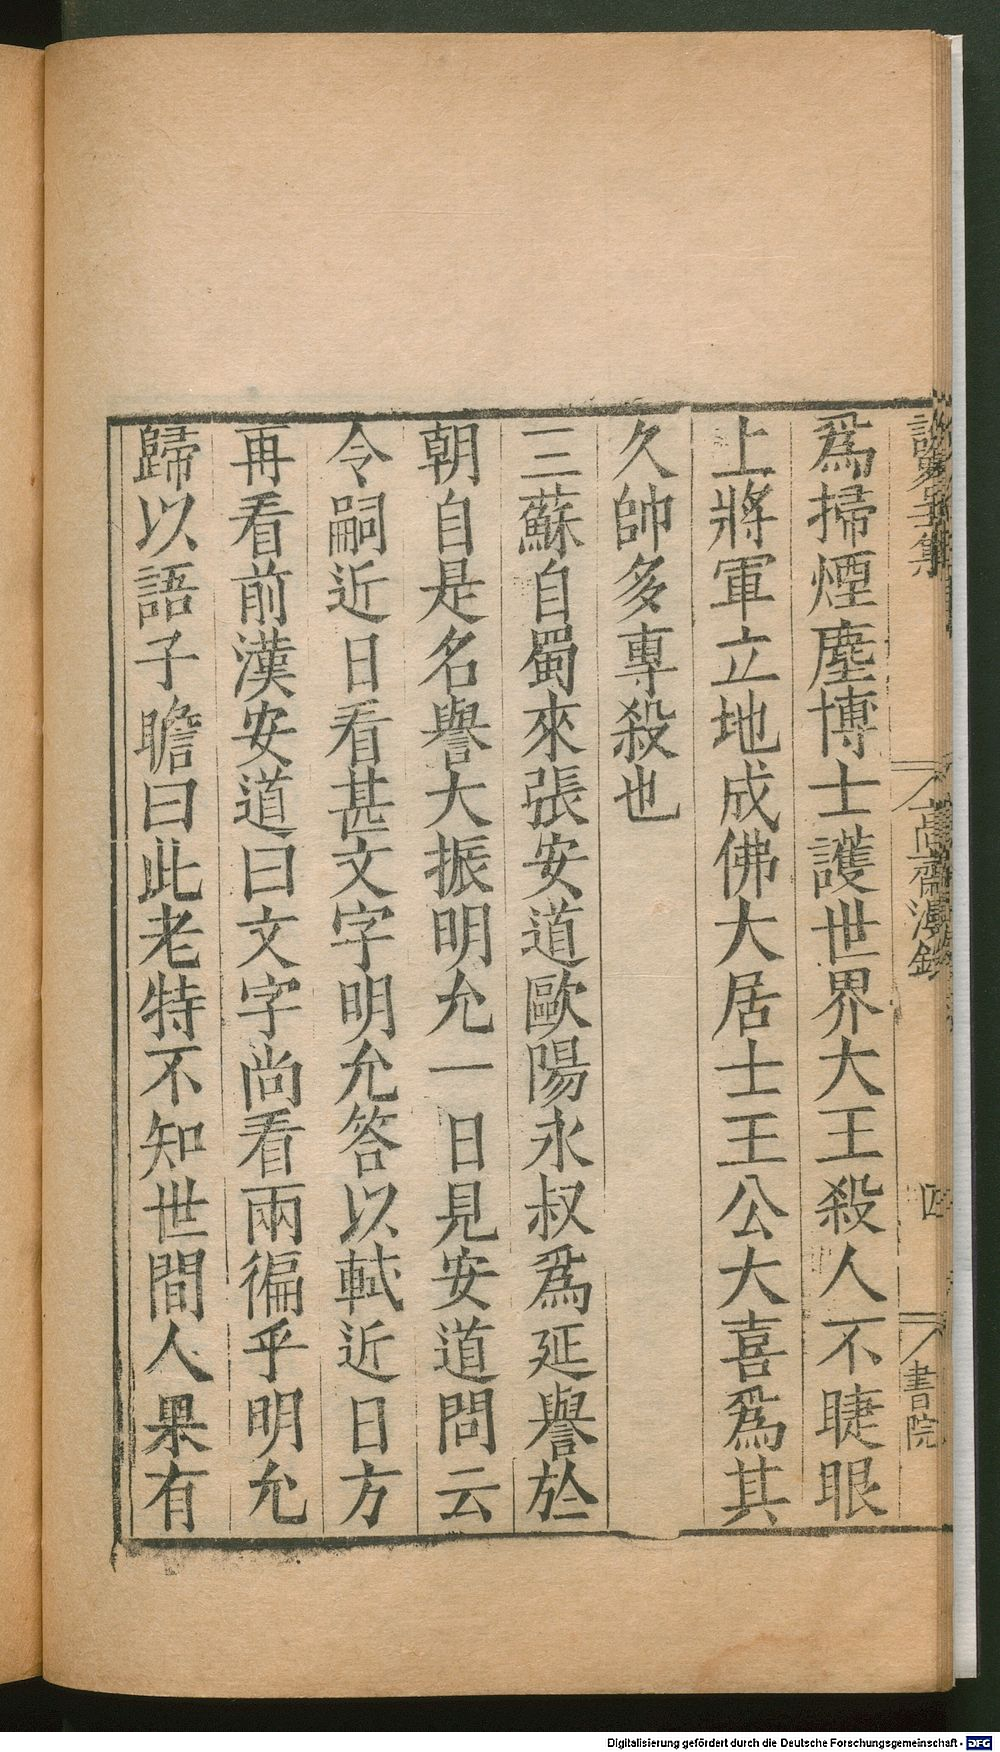 爲掃煙塵博士護世界大王殺人不睫眼
上將軍立地成佛大居士王公大喜爲其
久帥多專殺也
三蘇自蜀來張安道歐陽永叔爲延譽於
朝自是名譽大振明允一日見安道問云
令嗣近日看甚文字明允答以軾近日方
再看前漢安道曰文字尚看兩徧乎明允
歸以語子瞻曰此老特不知世間人果有
集
高齋漫錄
四
書院
Digitalisierung gefördert durch die Deutsche Forschungsgemeinschaft - DFG